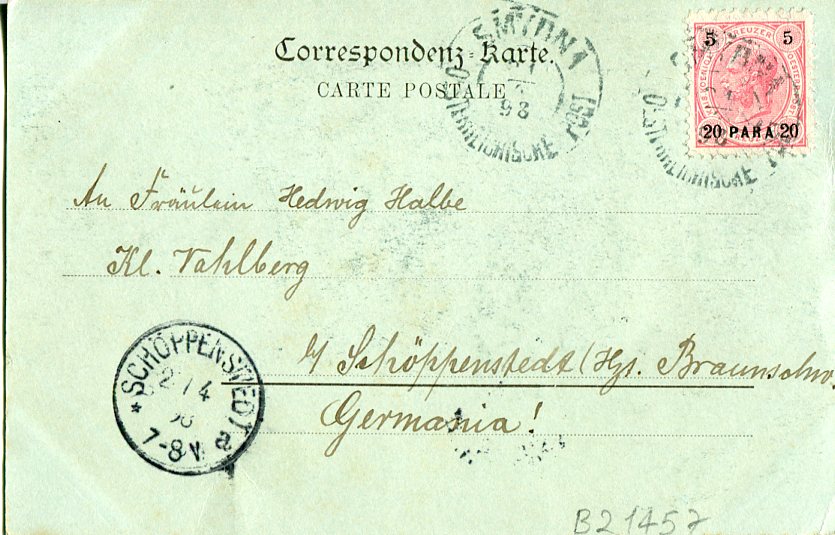 Correspondenz-Karte.
CARTE POSTALE
SMYRNA
98
OESTERREICHISCHE POST
5 KREUZER 5
20 PARA 20
An Fräulein Hedwig Halbe
Kl. Vahlberg
b/ Schöppenstedt (Hzs. Braunschw.
Germania!
* SCHÖPPENSTEDT a
2/4
98
7-8V
B21457